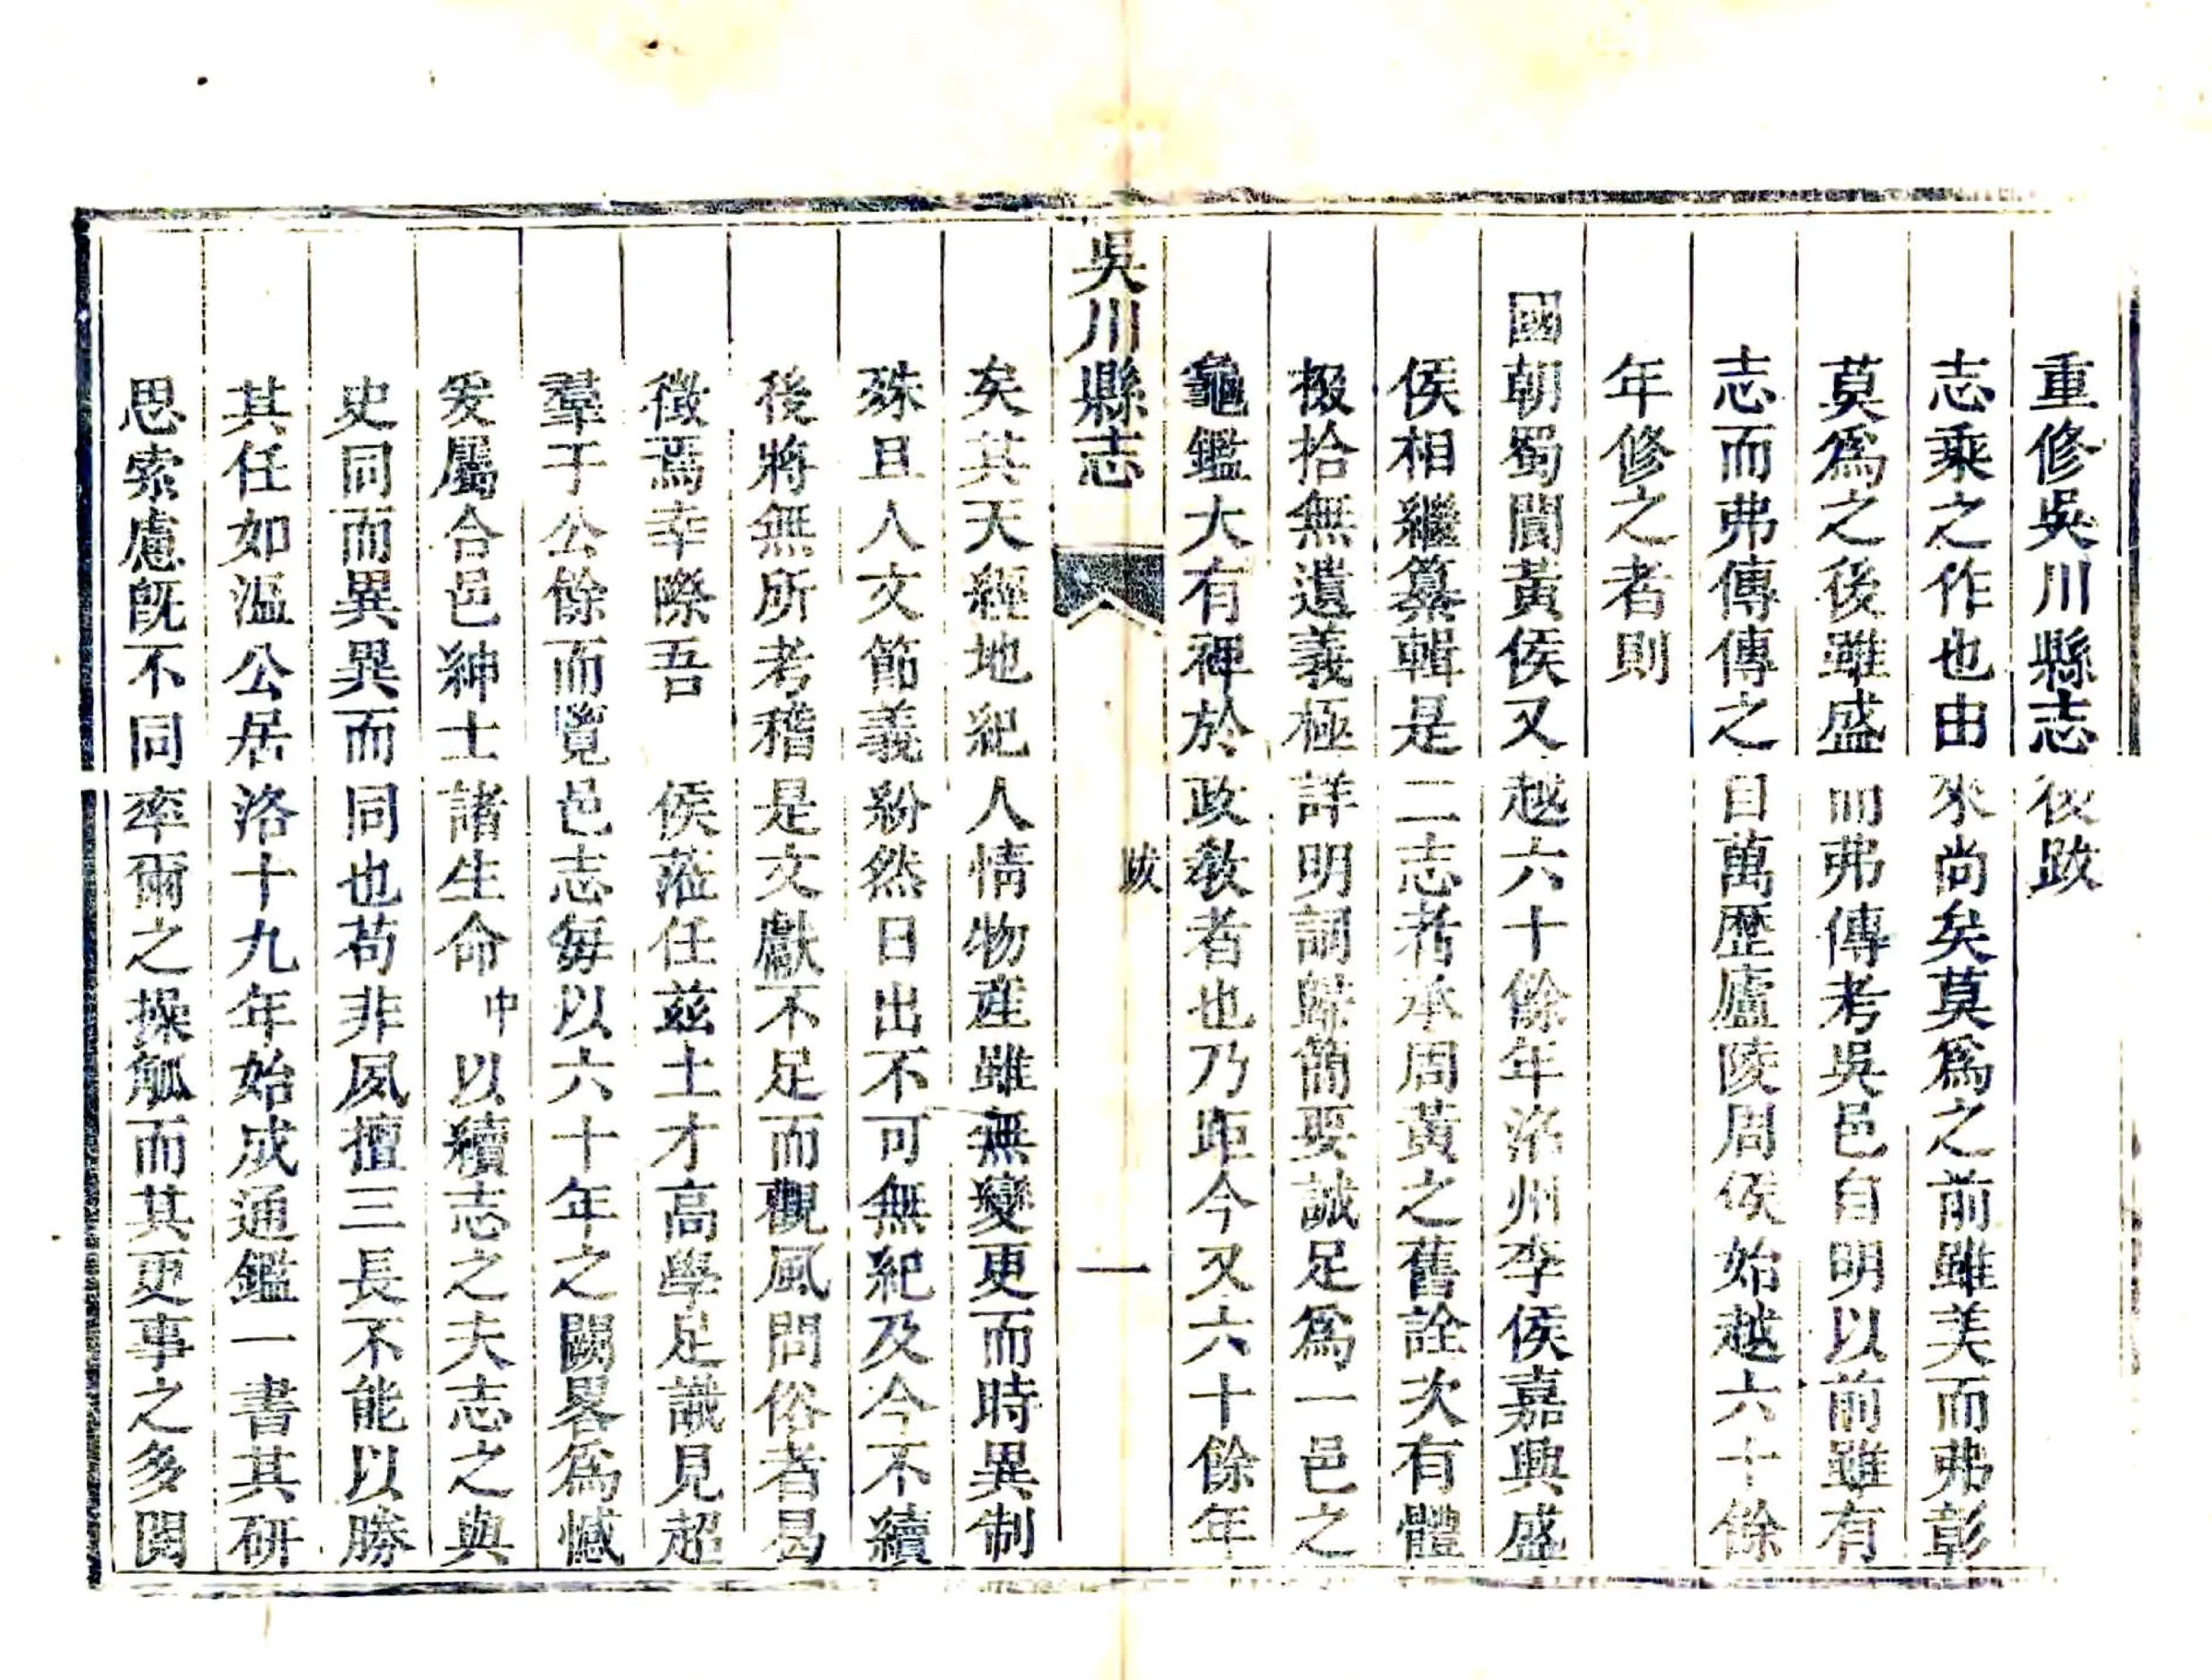 重修吳川縣志後跋
志乘之作也由來尚矣莫爲之前雖美而弗彰
莫爲之後雖盛而弗傳考吳邑自明以前雖有
志而弗傳傳之自萬歷廬陵周侯始越六十餘
年修之者則
國朝蜀閬黃侯又越六十餘年洺州李侯嘉興盛
侯相繼纂輯是二志者承周黃之舊詮次有體
掇拾無遺義極詳明詞歸簡要誠足爲一邑之
龜鑑大有裨於政教者也乃距今又六十餘年
吳川縣志 跋 一
矣其天經地紀人情物產雖無變更而時異制
殊且人文節義紛然日出不可無紀及今不續
後將無所考稽是文獻不足而觀風問俗者曷
徵焉幸際吾 侯蒞任茲土才高學足識見超
羣于公餘而覽邑志每以六十年之闕畧爲憾
爰屬合邑紳士諸生命中以續志之夫志之與
史同而異異而同也苟非夙擅三長不能以勝
其任如溫公居洛十九年始成通鑑一書其研
思索慮旣不同率爾之操觚而其更事之多閱